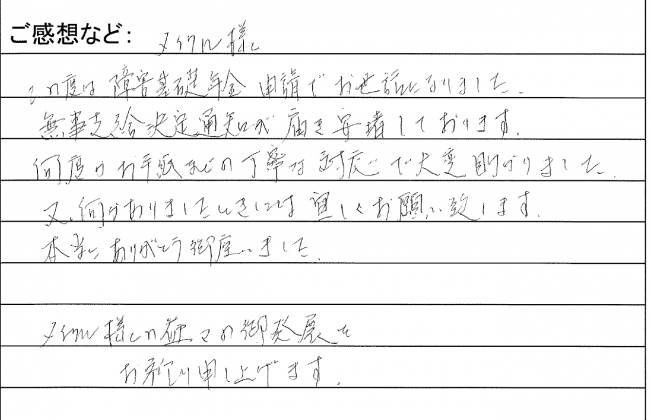 ご感想など: メイクル様へ
この度は障害基礎年金申請でお世話になりました。
無事支給決定通知が届き安堵しております。
何度かお手紙などの丁寧な対応で大変助かりました。
又、何かありましたときには宜しくお願い致します。
本当にありがとう御座いました。
メイクル様の益々の御発展を
お祈り申し上げます。